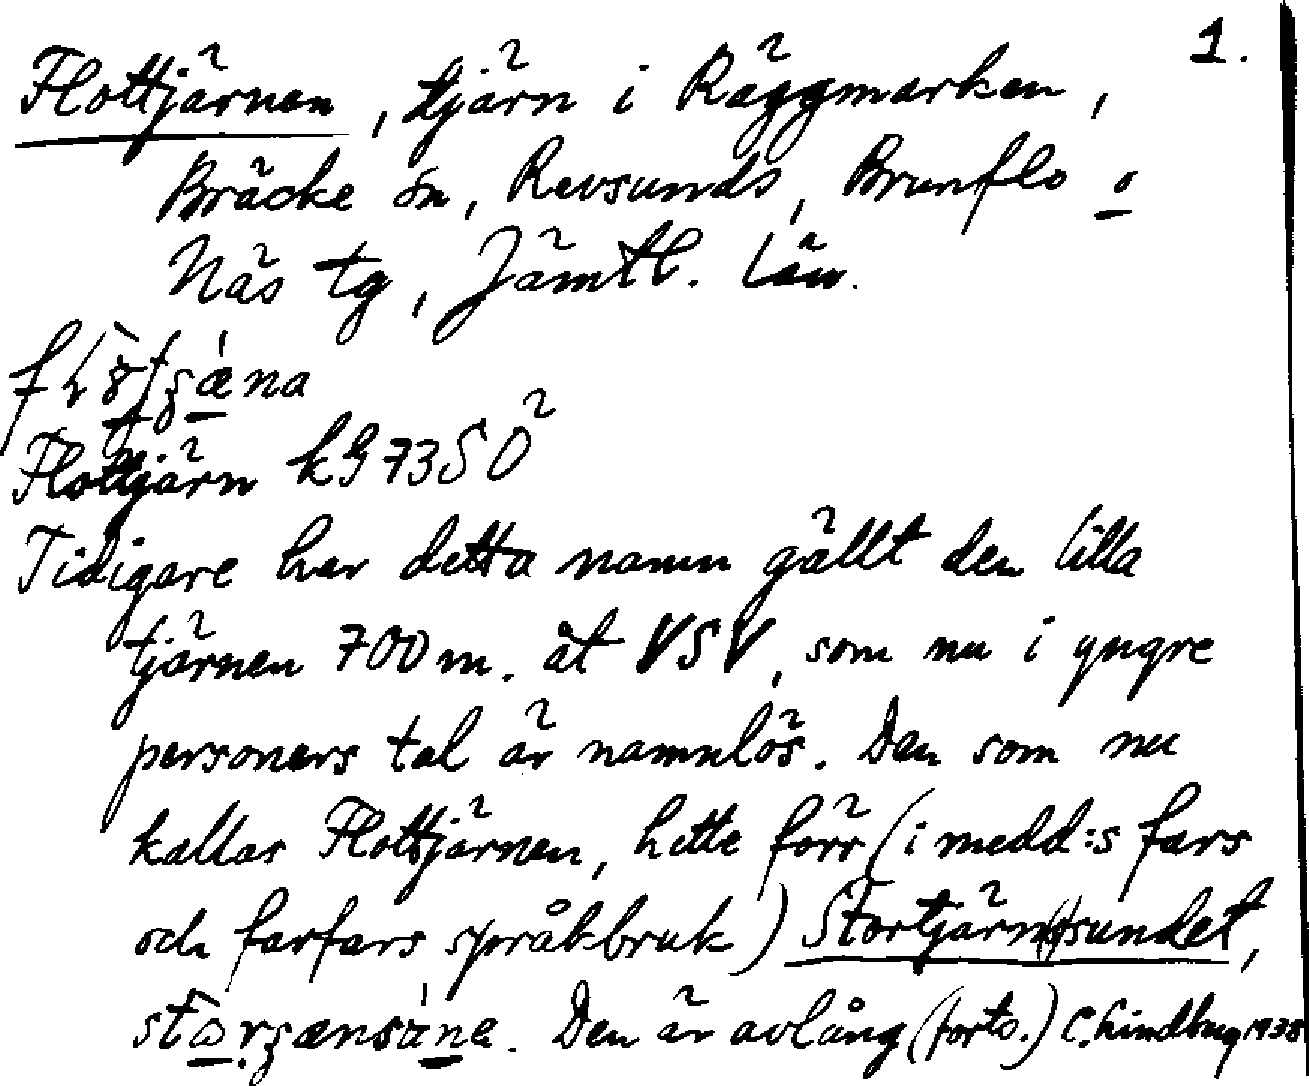 1.
Flottjärnen, tjärn i Räggmarken,
Bräcke sn, Revsunds, Brunflo o
Näs tg, Jämtl. län.
Flottjärn kG 73SO²
Tidigare har detta namn gällt den lilla
tjärnen 700 m. åt VSV, som nu i yngre
personers tal är namnlös. Den som nu
kallas Flottjärnen, hette förr (i medd:s fars
och farfars språkbruk) Stortjärn(s)sundet,
Den är avlång (forts.) C. Lindberg 1938